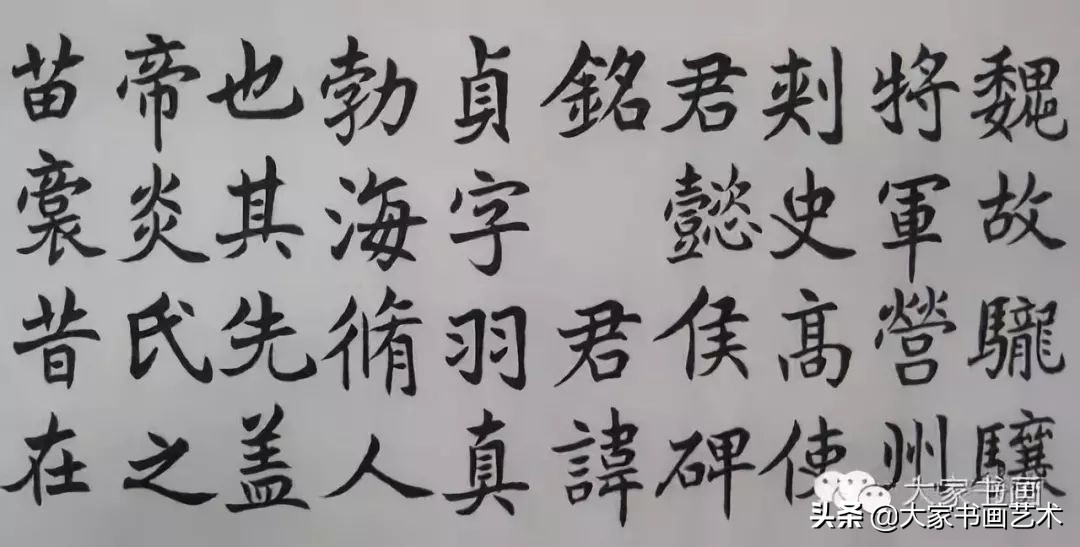 魏故驡驤
將軍營州
刾史高使
君懿侯碑
銘 君諱
貞字羽真
勃海脩人
也其先盖
帝炎氏之
苗裔昔在
大家书画
头条@大家书画艺术